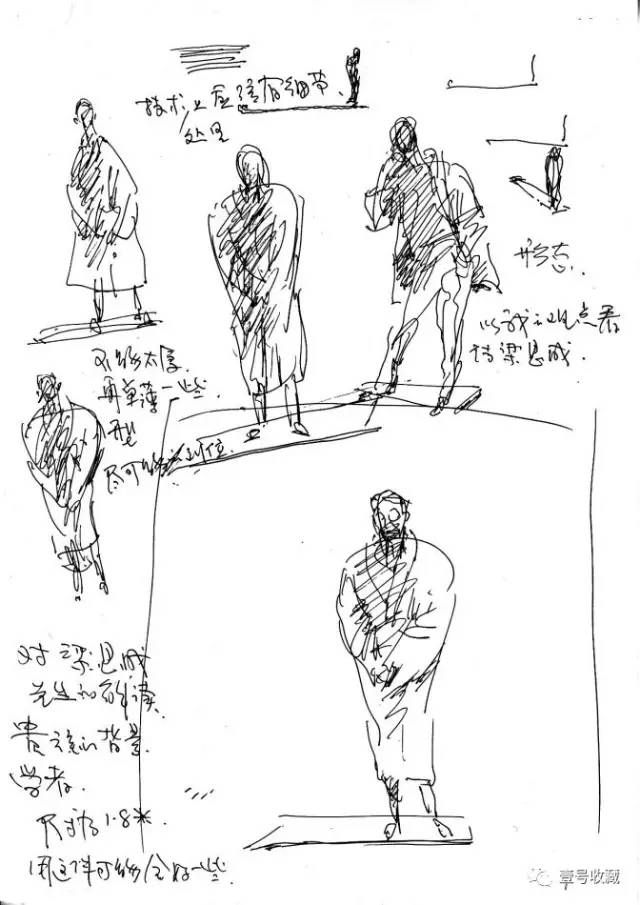 技术上应该有细节
处理
形态.
以我的观点看
待梁思成.
不能太厚.
再单薄一些.
尽可能 到位.
对梁思成
先生的解读.
贵族的背景.
学者.
尺寸为1.8米.
用这样可能会好一些.
壹号收藏